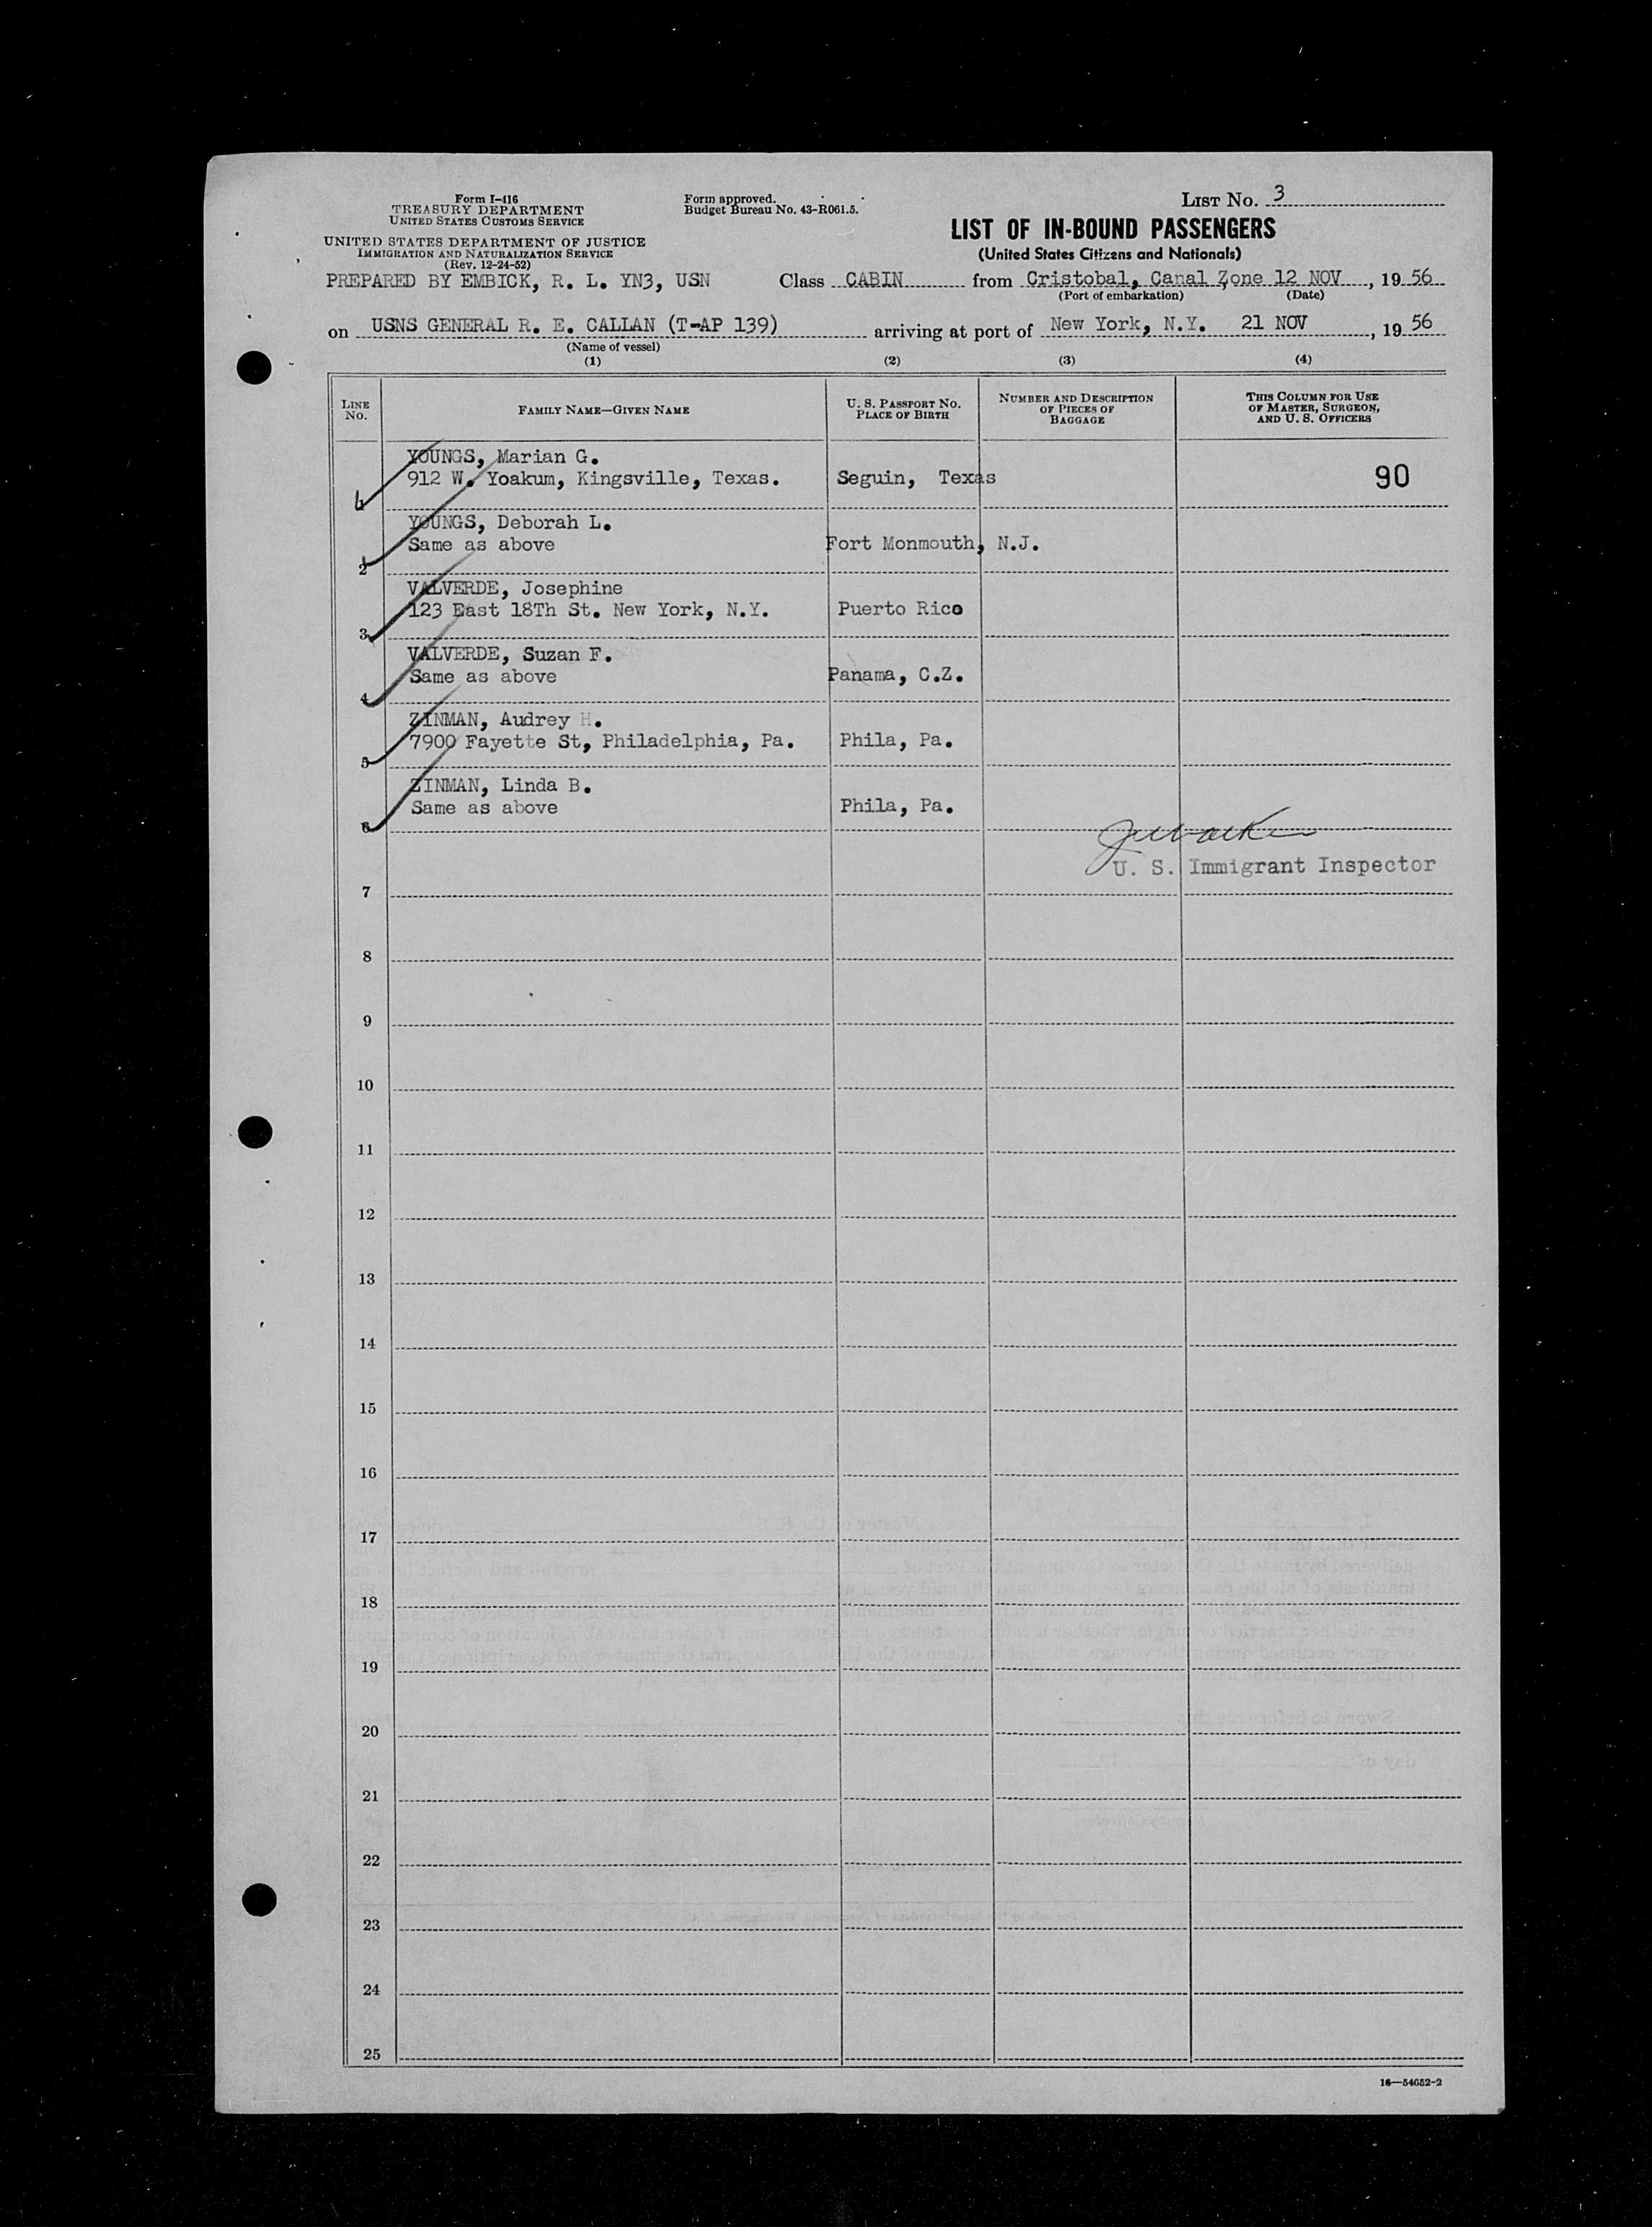 Form I-416
TREASURY DEPARTMENT
UNITED STATES CUSTOMS SERVICE
UNITED STATES DEPARTMENT OF JUSTICE
IMMIGRATION AND NATURALIZATION SERVICE
(Rev. 12-24-52)
Form approved.
Budget Bureau No. 43-R061.5.
LIST NO. 3
LIST OF IN-BOUND PASSENGERS
(United States Citizens and Nationals)
PREPARED BY EMBICK, R. L. YN3, USN Class CABIN from Cristobal, Canal Zone 12 NOV, 19 56
(Port of embarkation) (Date)
on USNS GENERAL R. E. CALLAN (T-AP 139) arriving at port of New York, N.Y. 21 NOV, 19 56
(Name of vessel)
(1) (2) (3) (4)
LINE NO.
FAMILY NAME—GIVEN NAME
U. S. PASSPORT NO.
PLACE OF BIRTH
NUMBER AND DESCRIPTION
OF PIECES OF
BAGGAGE
THIS COLUMN FOR USE
OF MASTER, SURGEON,
AND U. S. OFFICERS
YOUNGS, Marian G.
1 912 W. Yoakum, Kingsville, Texas. Seguin, Texas 90
YOUNGS, Deborah L.
2 Same as above Fort Monmouth, N.J.
VALVERDE, Josephine
3 123 East 18Th St. New York, N.Y. Puerto Rico
VALVERDE, Suzan F.
4 Same as above Panama, C.Z.
ZINMAN, Audrey H.
5 7900 Fayette St, Philadelphia, Pa. Phila, Pa.
ZINMAN, Linda B.
6 Same as above Phila, Pa.
U. S. Immigrant Inspector
7
8
9
10
11
12
13
14
15
16
17
18
19
20
21
22
23
24
25
16—54052-2